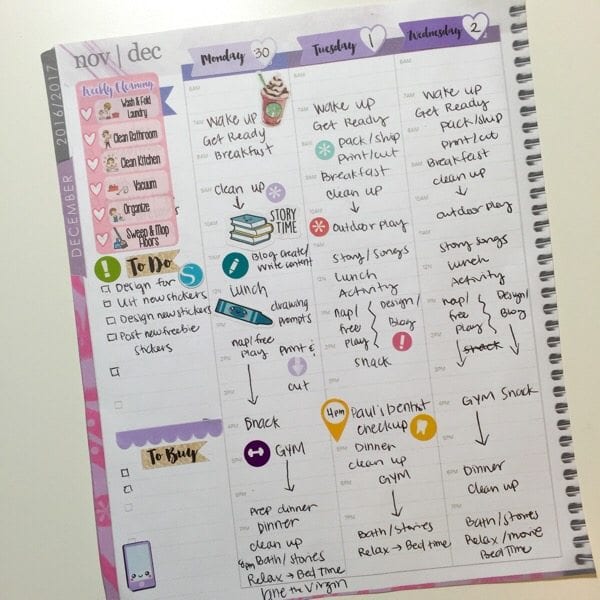 2016/2017
DECEMBER
nov | dec
Weekly Cleaning
Wash & Fold
Laundry
Clean Bathroom
Clean Kitchen
Vacuum
Organize
Sweep & Mop
Floors
To Do
Design for S
List new stickers
Design new stickers
Post new freebie
stickers
To Buy
Monday 30
6AM
7AM
Wake up
Get Ready
Breakfast
8AM
Clean up
10AM
STORY
TIME
11AM
Blog create/
write content
12PM
Lunch
drawing
prompts
nap/free
play
print &
cut
3PM
4PM
Snack
5PM
GYM
6PM
Prep dinner
Dinner
clean up
8pm Bath/stories
Relax → Bed Time
Jane the Virgin
Tuesday 1
6AM
7AM
Wake up
Get Ready
Pack/ship
print/cut
8AM
Breakfast
9AM
clean up
10AM
outdoor play
11AM
Story/Songs
12PM
Lunch
Activity
1PM
nap/
free
play
design/
Blog
2PM
snack
3PM
4pm
Paul's Dentist
checkup
5PM
Dinner
clean up
6PM
GYM
7PM
Bath/Stories
Relax → Bed time
Wednesday 2
6AM
7AM
Wake up
Get Ready
pack/ship
print/cut
8AM
Breakfast
9AM
clean up
10AM
outdoor play
11AM
Story songs
12PM
Lunch
Activity
1PM
nap/
free
play
Design/
Blog
2PM
snack
3PM
GYM Snack
5PM
6PM
Dinner
clean up
7PM
Bath/stories
Relax/movie
Bed Time